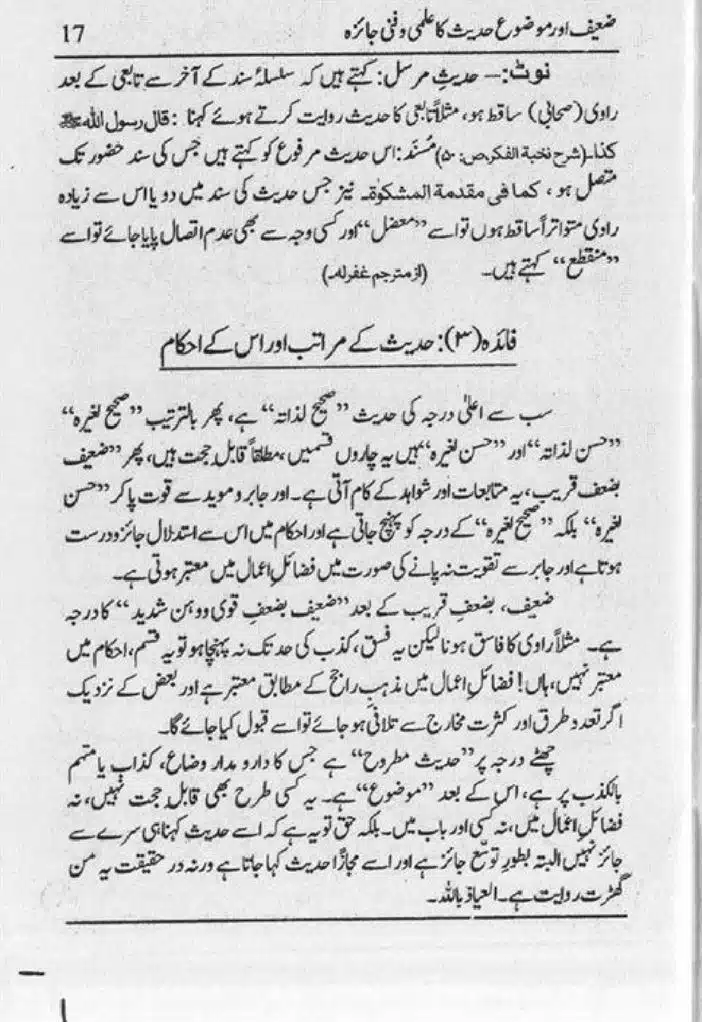 ضعیف اور موضوع حدیث کا علمی و فنی جائزہ
17
نوٹ:– حدیثِ مرسل: کہتے ہیں کہ سلسلۂ سند کے آخر سے تابعی کے بعد
راوی (صحابی) ساقط ہو، مثلاً تابعی کا حدیث روایت کرتے ہوئے کہنا : قال رسول اللہ ﷺ
کذا۔ (شرح نخبۃ الفکر،ص: ۵۰) مُسنَد: اس حدیث مرفوع کو کہتے ہیں جس کی سند حضور تک
متصل ہو ، کما فی مقدمة المشکوٰة۔ نیز جس حدیث کی سند میں دو یا اس سے زیادہ
راوی متواتراً ساقط ہوں تو اسے ”معضل“ اور کسی وجہ سے بھی عدم اتصال پایا جائے تو اسے
”منقطع“ کہتے ہیں۔ (از مترجم غفرلہ۔)
فائدہ (۳): حدیث کے مراتب اور اس کے احکام
سب سے اعلیٰ درجہ کی حدیث ”صحیح لذاتہ“ ہے، پھر بالترتیب ”صحیح لغیرہ“
”حسن لذاتہ“ اور ”حسن لغیرہ“ ہیں یہ چاروں قسمیں ،مطلقاً قابلِ حجت ہیں، پھر ”ضعیف
بضعف قریب، یہ متابعات اور شواہد کے کام آتی ہے۔ اور جابر و موید سے قوت پا کر ”حسن
لغیرہ“ بلکہ ”صحیح لغیرہ“ کے درجہ کو پہنچ جاتی ہے اور احکام میں اس سے استدلال جائز و درست
ہوتا ہے اور جابر سے تقویت نہ پانے کی صورت میں فضائلِ اعمال میں معتبر ہوتی ہے۔
ضعیف، بضعفِ قریب کے بعد ”ضعیف بضعفِ قوی و وہن شدید“ کا درجہ
ہے۔ مثلاً راوی کا فاسق ہونا لیکن یہ فسق، کذب کی حد تک نہ پہنچا ہو تو یہ قسم، احکام میں
معتبر نہیں، ہاں! فضائلِ اعمال میں مذہبِ راجح کے مطابق معتبر ہے اور بعض کے نزدیک
اگر تعدد طرق اور کثرت مخارج سے تلافی ہو جائے تو اسے قبول کیا جائے گا۔
چھٹے درجہ پر ”حدیث مطروح“ ہے جس کا دار و مدار وضاع، کذاب یا متہم
بالکذب پر ہے، اس کے بعد ”موضوع“ ہے۔ یہ کسی طرح بھی قابلِ حجت نہیں، نہ
فضائلِ اعمال میں، نہ کسی اور باب میں۔ بلکہ حق تو یہ ہے کہ اسے حدیث کہنا ہی سرے سے
جائز نہیں البتہ بطورِ توسّع جائز ہے اور اسے مجازاً حدیث کہا جاتا ہے ورنہ در حقیقت یہ من
گھڑت روایت ہے۔ العیاذ باللہ۔